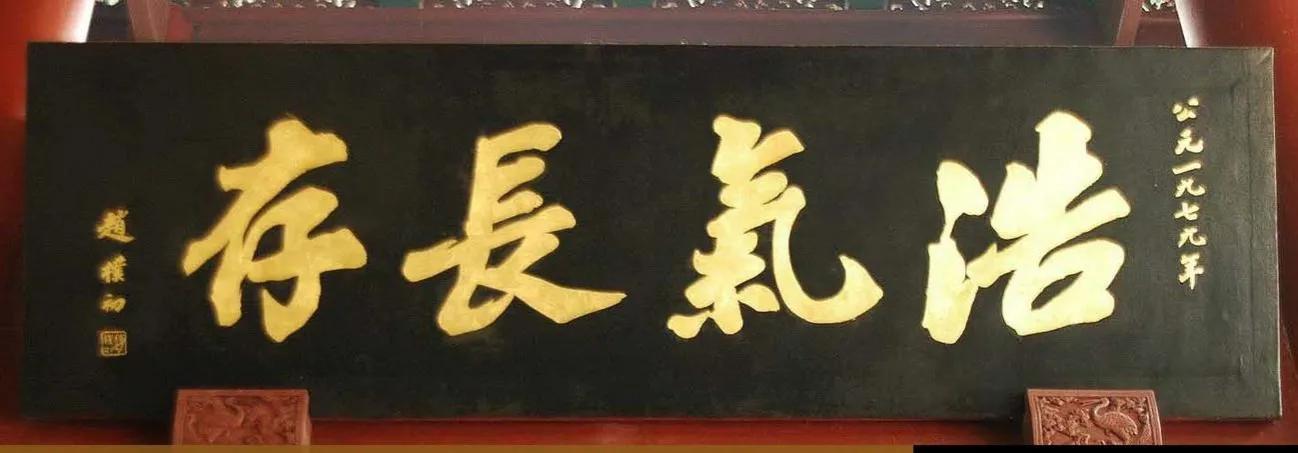 公元一九七九年
浩氣長存
趙樸初